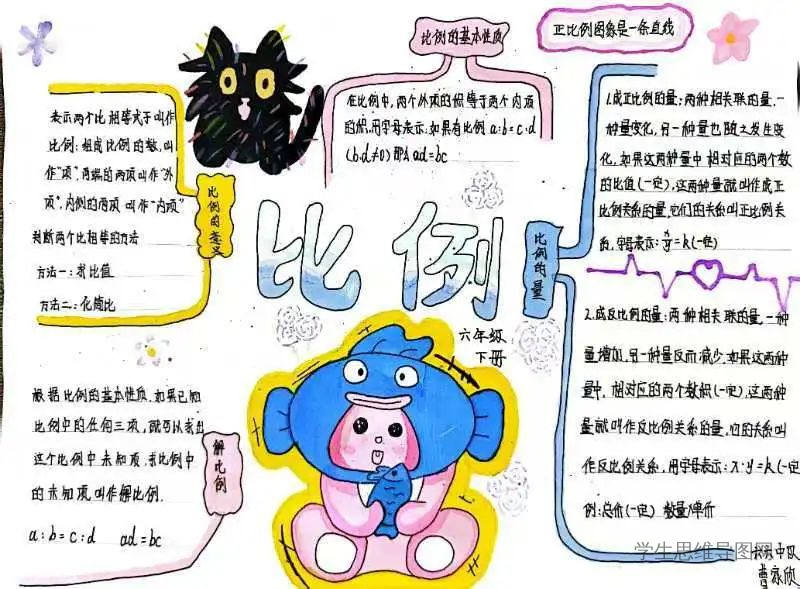 比例的基本性质
正比例图象是一条直线
表示两个比相等式子叫作
比例:组成比例的数,叫
作"项",两端的两项叫作"外
项",内侧的两项 叫作"内项"
判断两个比相等的方法
方法一:求比值
方法二:化简比
比例的意义
在比例中,两个外项的积等于两个内项
的积,用字母表示:如果有比例 a:b=c:d
(b.d≠0) 那么ad=bc
比例
六年级
下册
比例的量
1.成正比例的量:两种相关联的量,一
种量变化,另一种量也随之发生变
化,如果这两种量中相对应的两个数
的比值(一定),这两种量就叫作成正
比例关系的量,它们的关系叫正比例关
系,字母表示:y/x=k(一定)
2.成反比例的量:两种相关联的量,一种
量增加,另一种量反而减少,如果这两种
量中,相对应的两个数积(一定),这两种
量就叫作反比例关系的量,它的关系叫
作反比例关系,用字母表示:x·y=k(一定
例:总价(一定) 数量/单价
根据比例的基本性质,如果已知
比例中的任何三项,就可以求出
这个比例中未知项.求比例中
的未知项,叫作解比例.
a:b=c:d ad=bc
解比例
学生思维导图网
中队
曹家欣